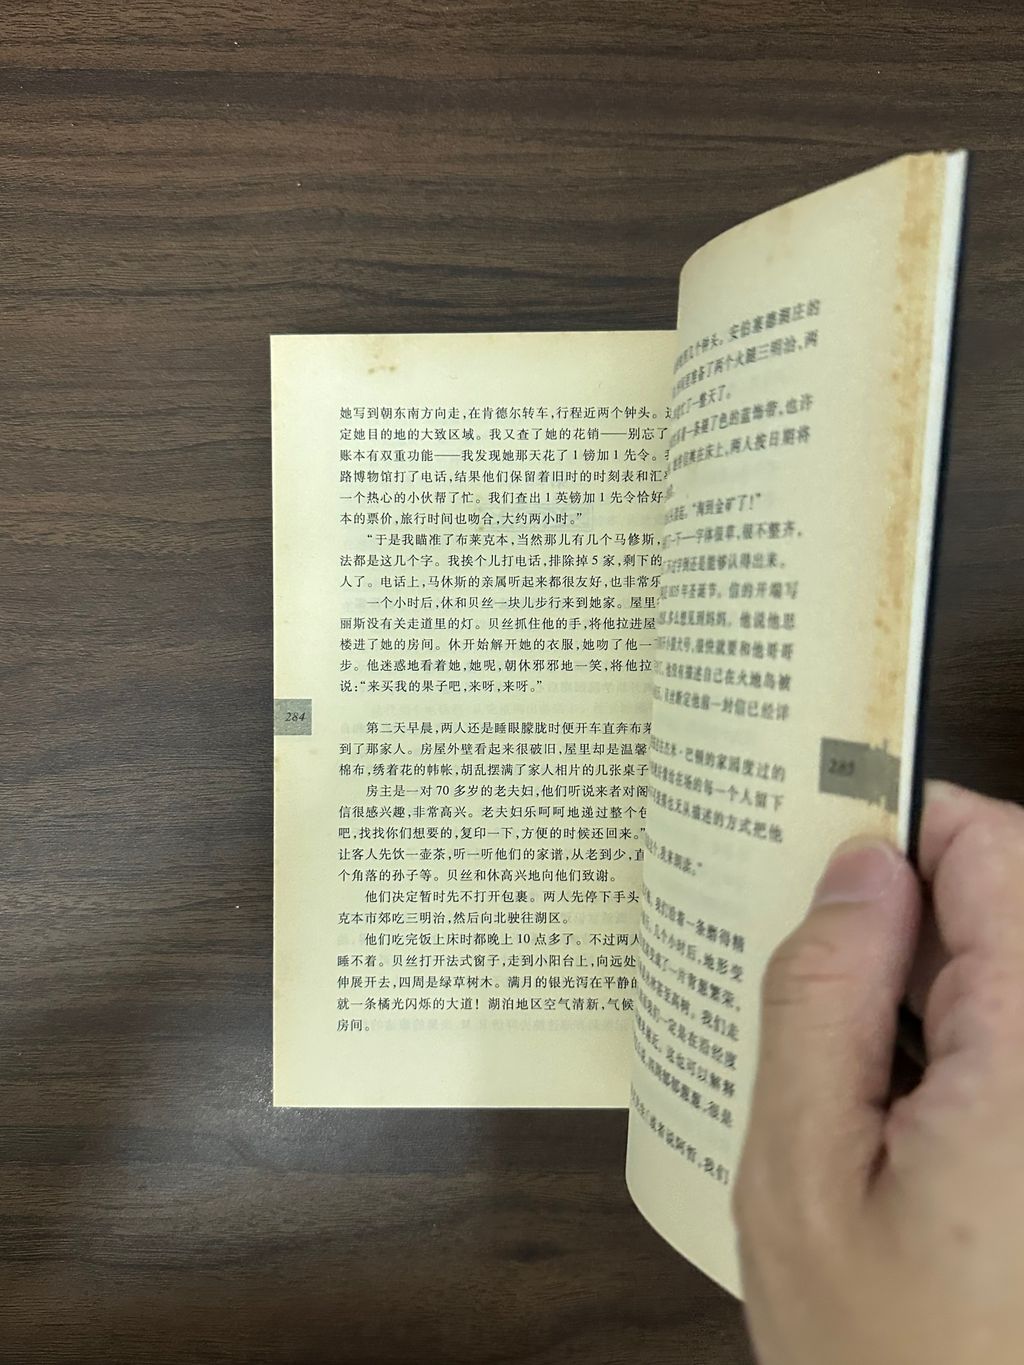 她写到朝东南方向走,在肯德尔转车,行程近两个钟头。
定她目的地的大致区域。我又查了她的花销——别忘了
账本有双重功能——我发现她那天花了1镑加1先令。
路博物馆打了电话,结果他们保留着旧时的时刻表和汇
一个热心的小伙帮了忙。我们查出1英镑加1先令恰好
本的票价,旅行时间也吻合,大约两小时。”
“于是我瞄准了布莱克本,当然那儿有几个马修斯,
法都是这几个字。我挨个儿打电话,排除掉5家,剩下的
人了。电话上,马休斯的亲属听起来都很友好,也非常乐
一个小时后,休和贝丝一块儿步行来到她家。屋里
丽斯没有关走道里的灯。贝丝抓住他的手,将他拉进屋
楼进了她的房间。休开始解开她的衣服,她吻了他一
步。他迷惑地看着她,她呢,朝休邪邪地一笑,将他拉
说:“来买我的果子吧,来呀,来呀。”
284
第二天早晨,两人还是睡眼朦胧时便开车直奔布莱
到了那家人。房屋外壁看起来很破旧,屋里却是温馨
棉布,绣着花的帏帐,胡乱摆满了家人相片的几张桌子
房主是一对70多岁的老夫妇,他们听说来者对阁
信很感兴趣,非常高兴。老夫妇乐呵呵地递过整个包
吧,找找你们想要的,复印一下,方便的时候还回来。”
让客人先饮一壶茶,听一听他们的家谱,从老到少,直
个角落的孙子等。贝丝和休高兴地向他们致谢。
他们决定暂时先不打开包裹。两人先停下手头
克本市郊吃三明治,然后向北驶往湖区。
他们吃完饭上床时都晚上10点多了。不过两人
睡不着。贝丝打开法式窗子,走到小阳台上,向远处
伸展开去,四周是绿草树木。满月的银光泻在平静的
就一条橘光闪烁的大道!湖泊地区空气清新,气候
房间。
几个钟头。安伯塞德湖庄的
准备了两个火腿三明治,两
了一整天了。
一条褪了色的蓝饰带,也许
在床上,两人按日期将
“淘到金矿了!”
了一下——字体很草,很不整齐,
不过字倒还是能够认得出来。
年圣诞节。信的开端写
多么想见到妈妈。他说他思
很快就要和他哥哥
他没有描述自己在火地岛被
贝丝断定他前一封信已经详
杰米·巴顿的家园度过的
给在场的每一个人留下
也无从描述的方式把他
我来朗读。”
285
我们沿着一条磨得精
几个小时后,地形变
变成了一片青葱繁荣,
甚至高树。我们走
我们一定是在沿经度
接近。这也可以解释
郁郁葱葱,很是
(或者说阿哲,我们